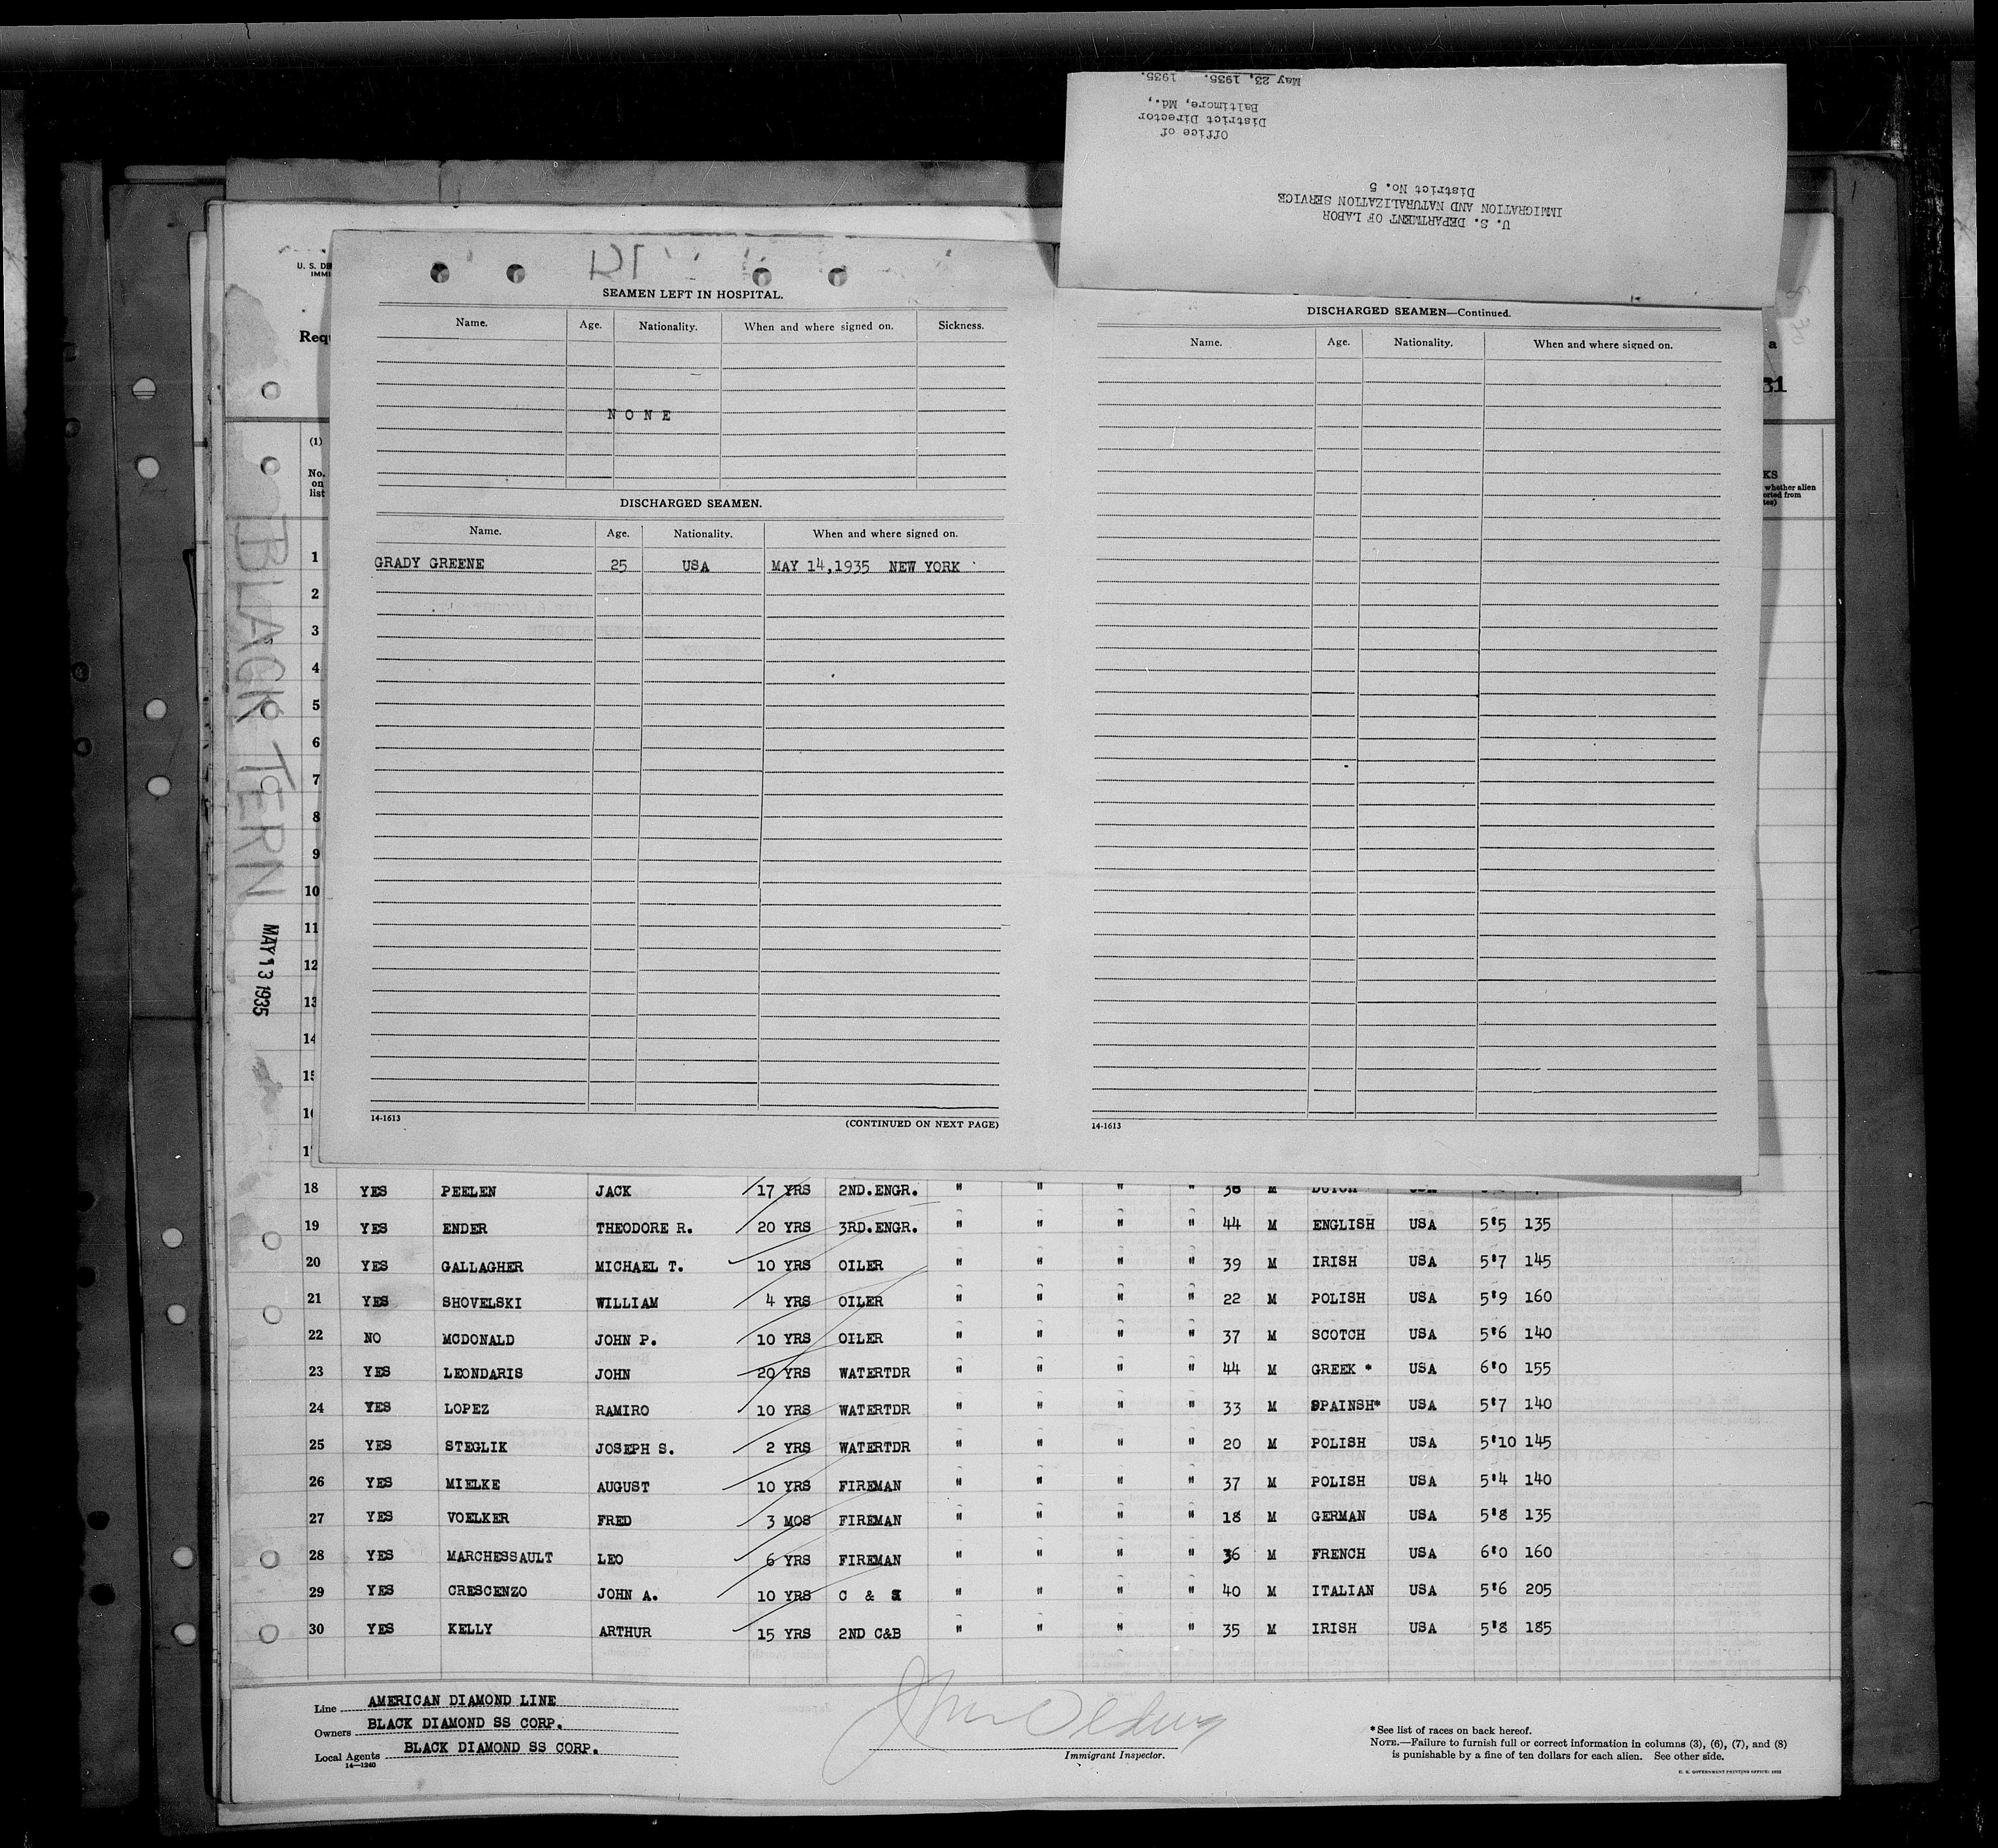 May 23, 1935. 1935.
Baltimore, Md.,
District Director
Office of
District No. 5
IMMIGRATION AND NATURALIZATION SERVICE
U. S. DEPARTMENT OF LABOR
U. S.
SEAMEN LEFT IN HOSPITAL.
Name. Age. Nationality. When and where signed on. Sickness.
NONE
DISCHARGED SEAMEN.
Name. Age. Nationality. When and where signed on.
GRADY GREENE 25 USA MAY 14,1935 NEW YORK
14-1613 (CONTINUED ON NEXT PAGE)
DISCHARGED SEAMEN—Continued.
Name. Age. Nationality. When and where signed on.
14-1613
a
31
KS
whether alien
(1)
No.
on
list
1
2
3
4
5
6
7
8
9
10
11
12
13
14
BLACK TERN
MAY 13 1935
18 YES PEELEN JACK 17 YRS 2ND.ENGR. " " " " 36 M DUTCH USA
19 YES ENDER THEODORE R. 20 YRS 3RD.ENGR. " " " " 44 M ENGLISH USA 5'5 135
20 YES GALLAGHER MICHAEL T. 10 YRS OILER " " " " 39 M IRISH USA 5'7 145
21 YES SHOVELSKI WILLIAM 4 YRS OILER " " " " 22 M POLISH USA 5'9 160
22 NO MCDONALD JOHN P. 10 YRS OILER " " " " 37 M SCOTCH USA 5'6 140
23 YES LEONDARIS JOHN 20 YRS WATERTDR " " " " 44 M GREEK * USA 6'0 155
24 YES LOPEZ RAMIRO 10 YRS WATERTDR " " " " 33 M SPAINSH* USA 5'7 140
25 YES STEGLIK JOSEPH S. 2 YRS WATERTDR " " " " 20 M POLISH USA 5'10 145
26 YES MIELKE AUGUST 10 YRS FIREMAN " " " " 37 M POLISH USA 5'4 140
27 YES VOELKER FRED 3 MOS FIREMAN " " " " 18 M GERMAN USA 5'8 135
28 YES MARCHESSAULT LEO 6 YRS FIREMAN " " " " 36 M FRENCH USA 6'0 160
29 YES CRESCENZO JOHN A. 10 YRS C & " " " " 40 M ITALIAN USA 5'6 205
30 YES KELLY ARTHUR 15 YRS 2ND C&B " " " " 35 M IRISH USA 5'8 185
Line AMERICAN DIAMOND LINE
Owners BLACK DIAMOND SS CORP.
Local Agents BLACK DIAMOND SS CORP.
14—1240
Immigrant Inspector.
*See list of races on back hereof.
NOTE.—Failure to furnish full or correct information in columns (3), (6), (7), and (8)
is punishable by a fine of ten dollars for each alien. See other side.
U. S. GOVERNMENT PRINTING OFFICE: